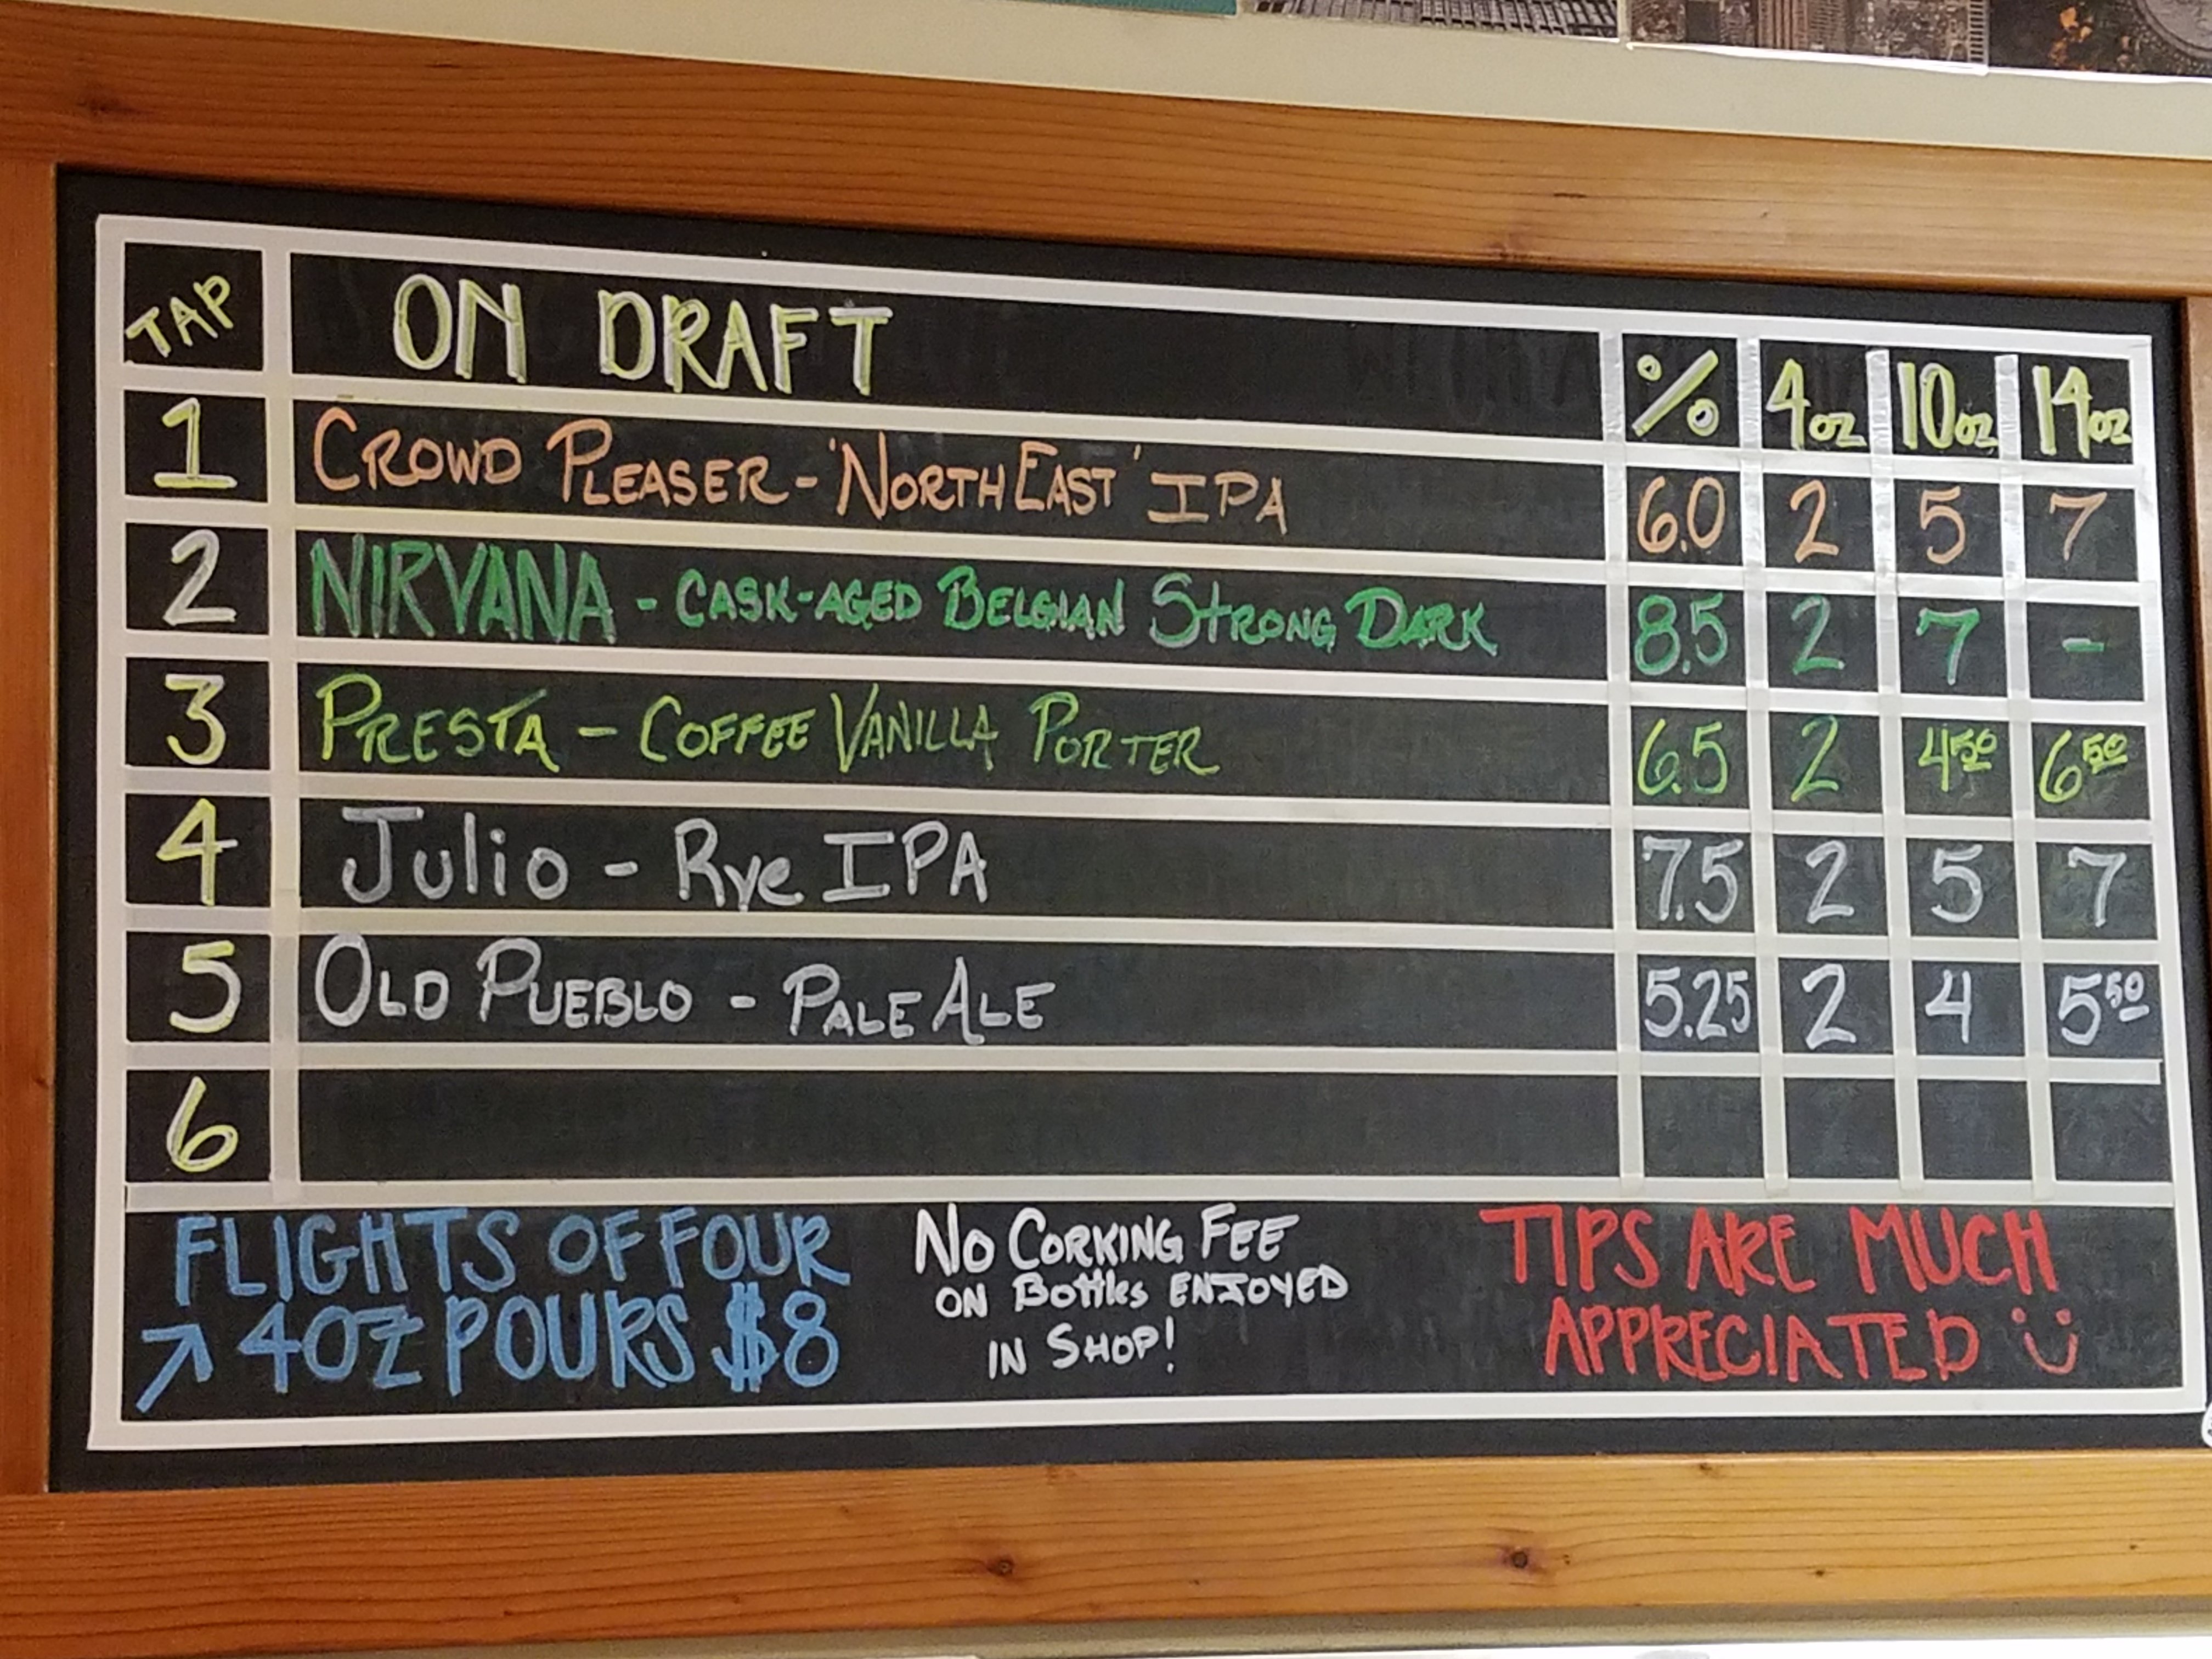 TAP ON DRAFT % 4oz 10oz 14oz
1 CROWD PLEASER - 'NORTHEAST' IPA 6.0 2 5 7
2 NIRVANA - CASK-AGED BELGIAN STRONG DARK 8.5 2 7 -
3 PRESTA - COFFEE VANILLA PORTER 6.5 2 4 50 6 50
4 Julio - Rye IPA 7.5 2 5 7
5 OLD PUEBLO - PALE ALE 5.25 2 4 5 50
6
FLIGHTS OF FOUR
↗ 4OZ POURS $8
NO CORKING FEE
ON BottlEs ENJOYED
IN SHOP!
TIPS ARE MUCH
APPRECIATED